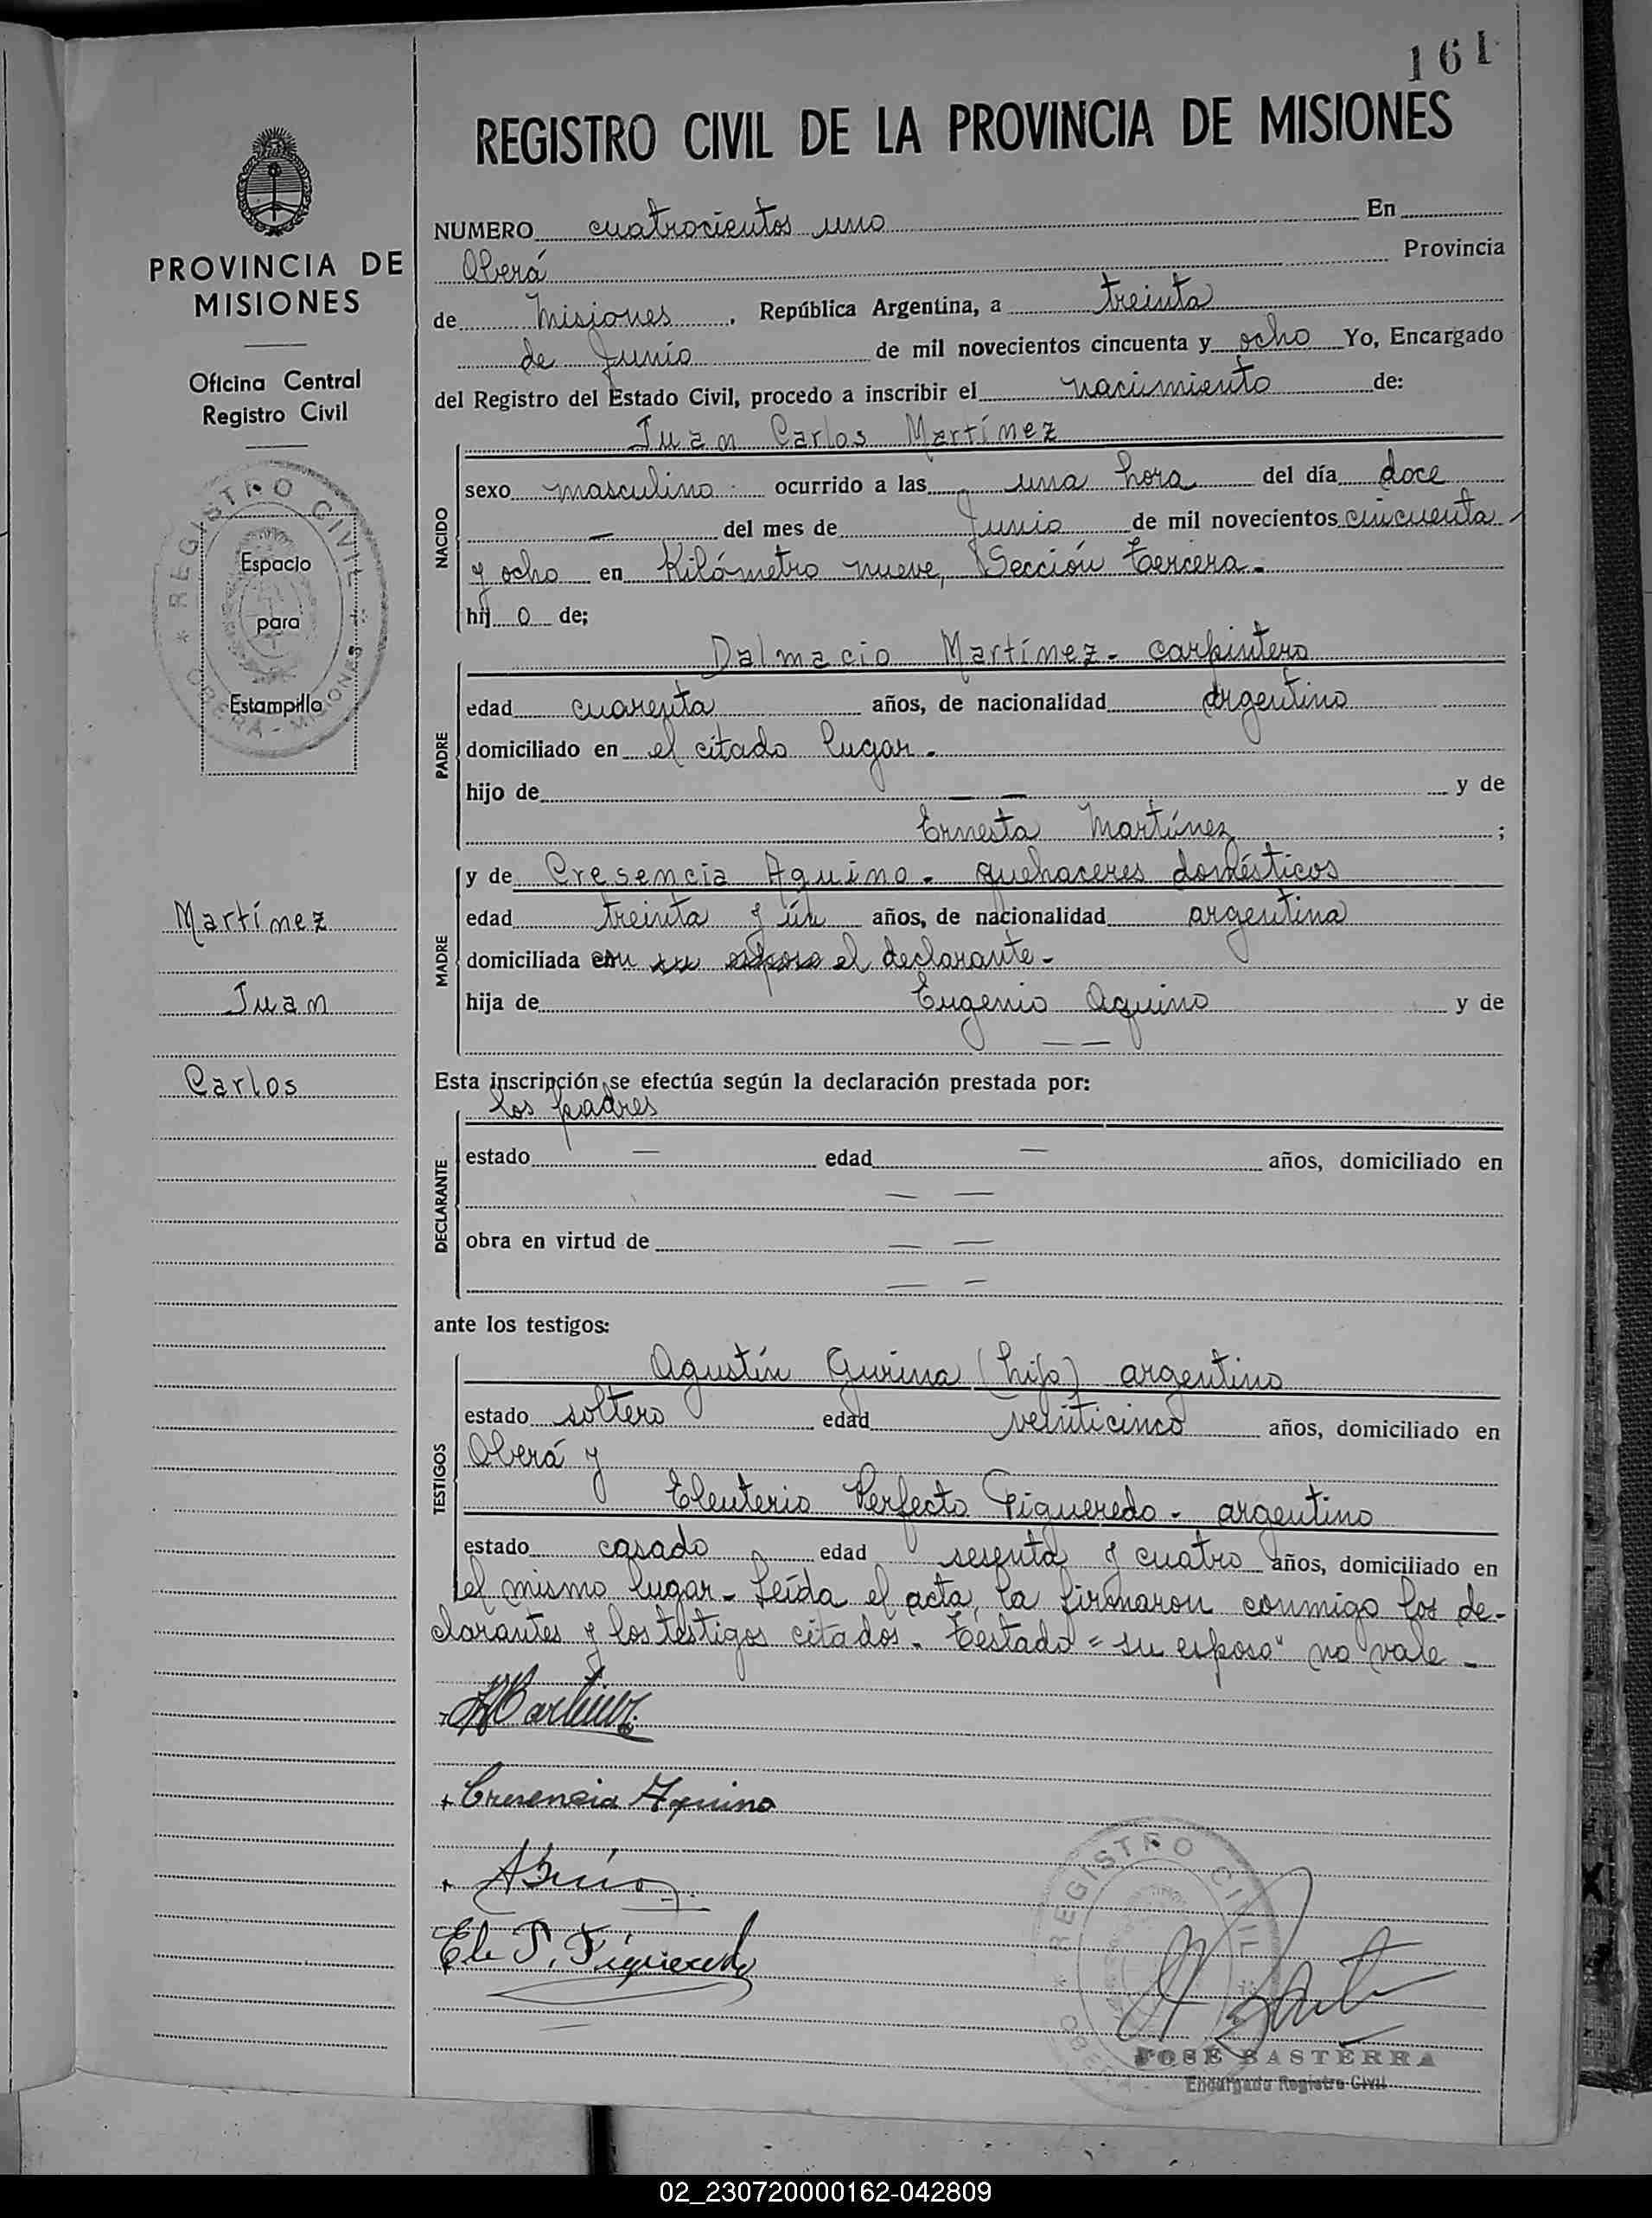 161
REGISTRO CIVIL DE LA PROVINCIA DE MISIONES
PROVINCIA DE
MISIONES
Oficina Central
Registro Civil
REGISTRO CIVIL
OBERA - MISIONES
Espacio
para
Estampilla
Martínez
Juan
Carlos
NUMERO cuatrocientos uno En
Oberá Provincia
de Misiones, República Argentina, a treinta
de Junio de mil novecientos cincuenta y ocho Yo, Encargado
del Registro del Estado Civil, procedo a inscribir el nacimiento de:
Juan Carlos Martínez
NACIDO
sexo masculino ocurrido a las una hora del día doce
— del mes de Junio de mil novecientos cincuenta
y ocho en Kilómetro nueve, Sección tercera.-
hij o de;
PADRE
Dalmacio Martínez - carpintero
edad cuarenta años, de nacionalidad argentino
domiciliado en el citado lugar.-
hijo de — — y de
Ernesta Martínez ;
MADRE
y de Cresencia Aquino - quehaceres domésticos
edad treinta y ún años, de nacionalidad argentina
domiciliada con su esposo el declarante -
hija de Eugenio Aquino y de
— —
Esta inscripción se efectúa según la declaración prestada por:
los padres
DECLARANTE
estado — edad — años, domiciliado en
— —
obra en virtud de — —
— —
ante los testigos:
TESTIGOS
Agustín Gurina (hijo) argentino
estado soltero edad veinticinco años, domiciliado en
Oberá y
Eleuterio Perfecto Figueredo - argentino
estado casado edad sesenta y cuatro años, domiciliado en
el mismo lugar - Leída el acta, la firmaron conmigo los de-
clarantes y los testigos citados. Testado = "su esposo" no vale -
Martinez
Cresencia Aquino
Ele P. Figueredo
REGISTRO CIVIL
JOSE BASTERRA
Encargado Registro Civil
02_230720000162-042809